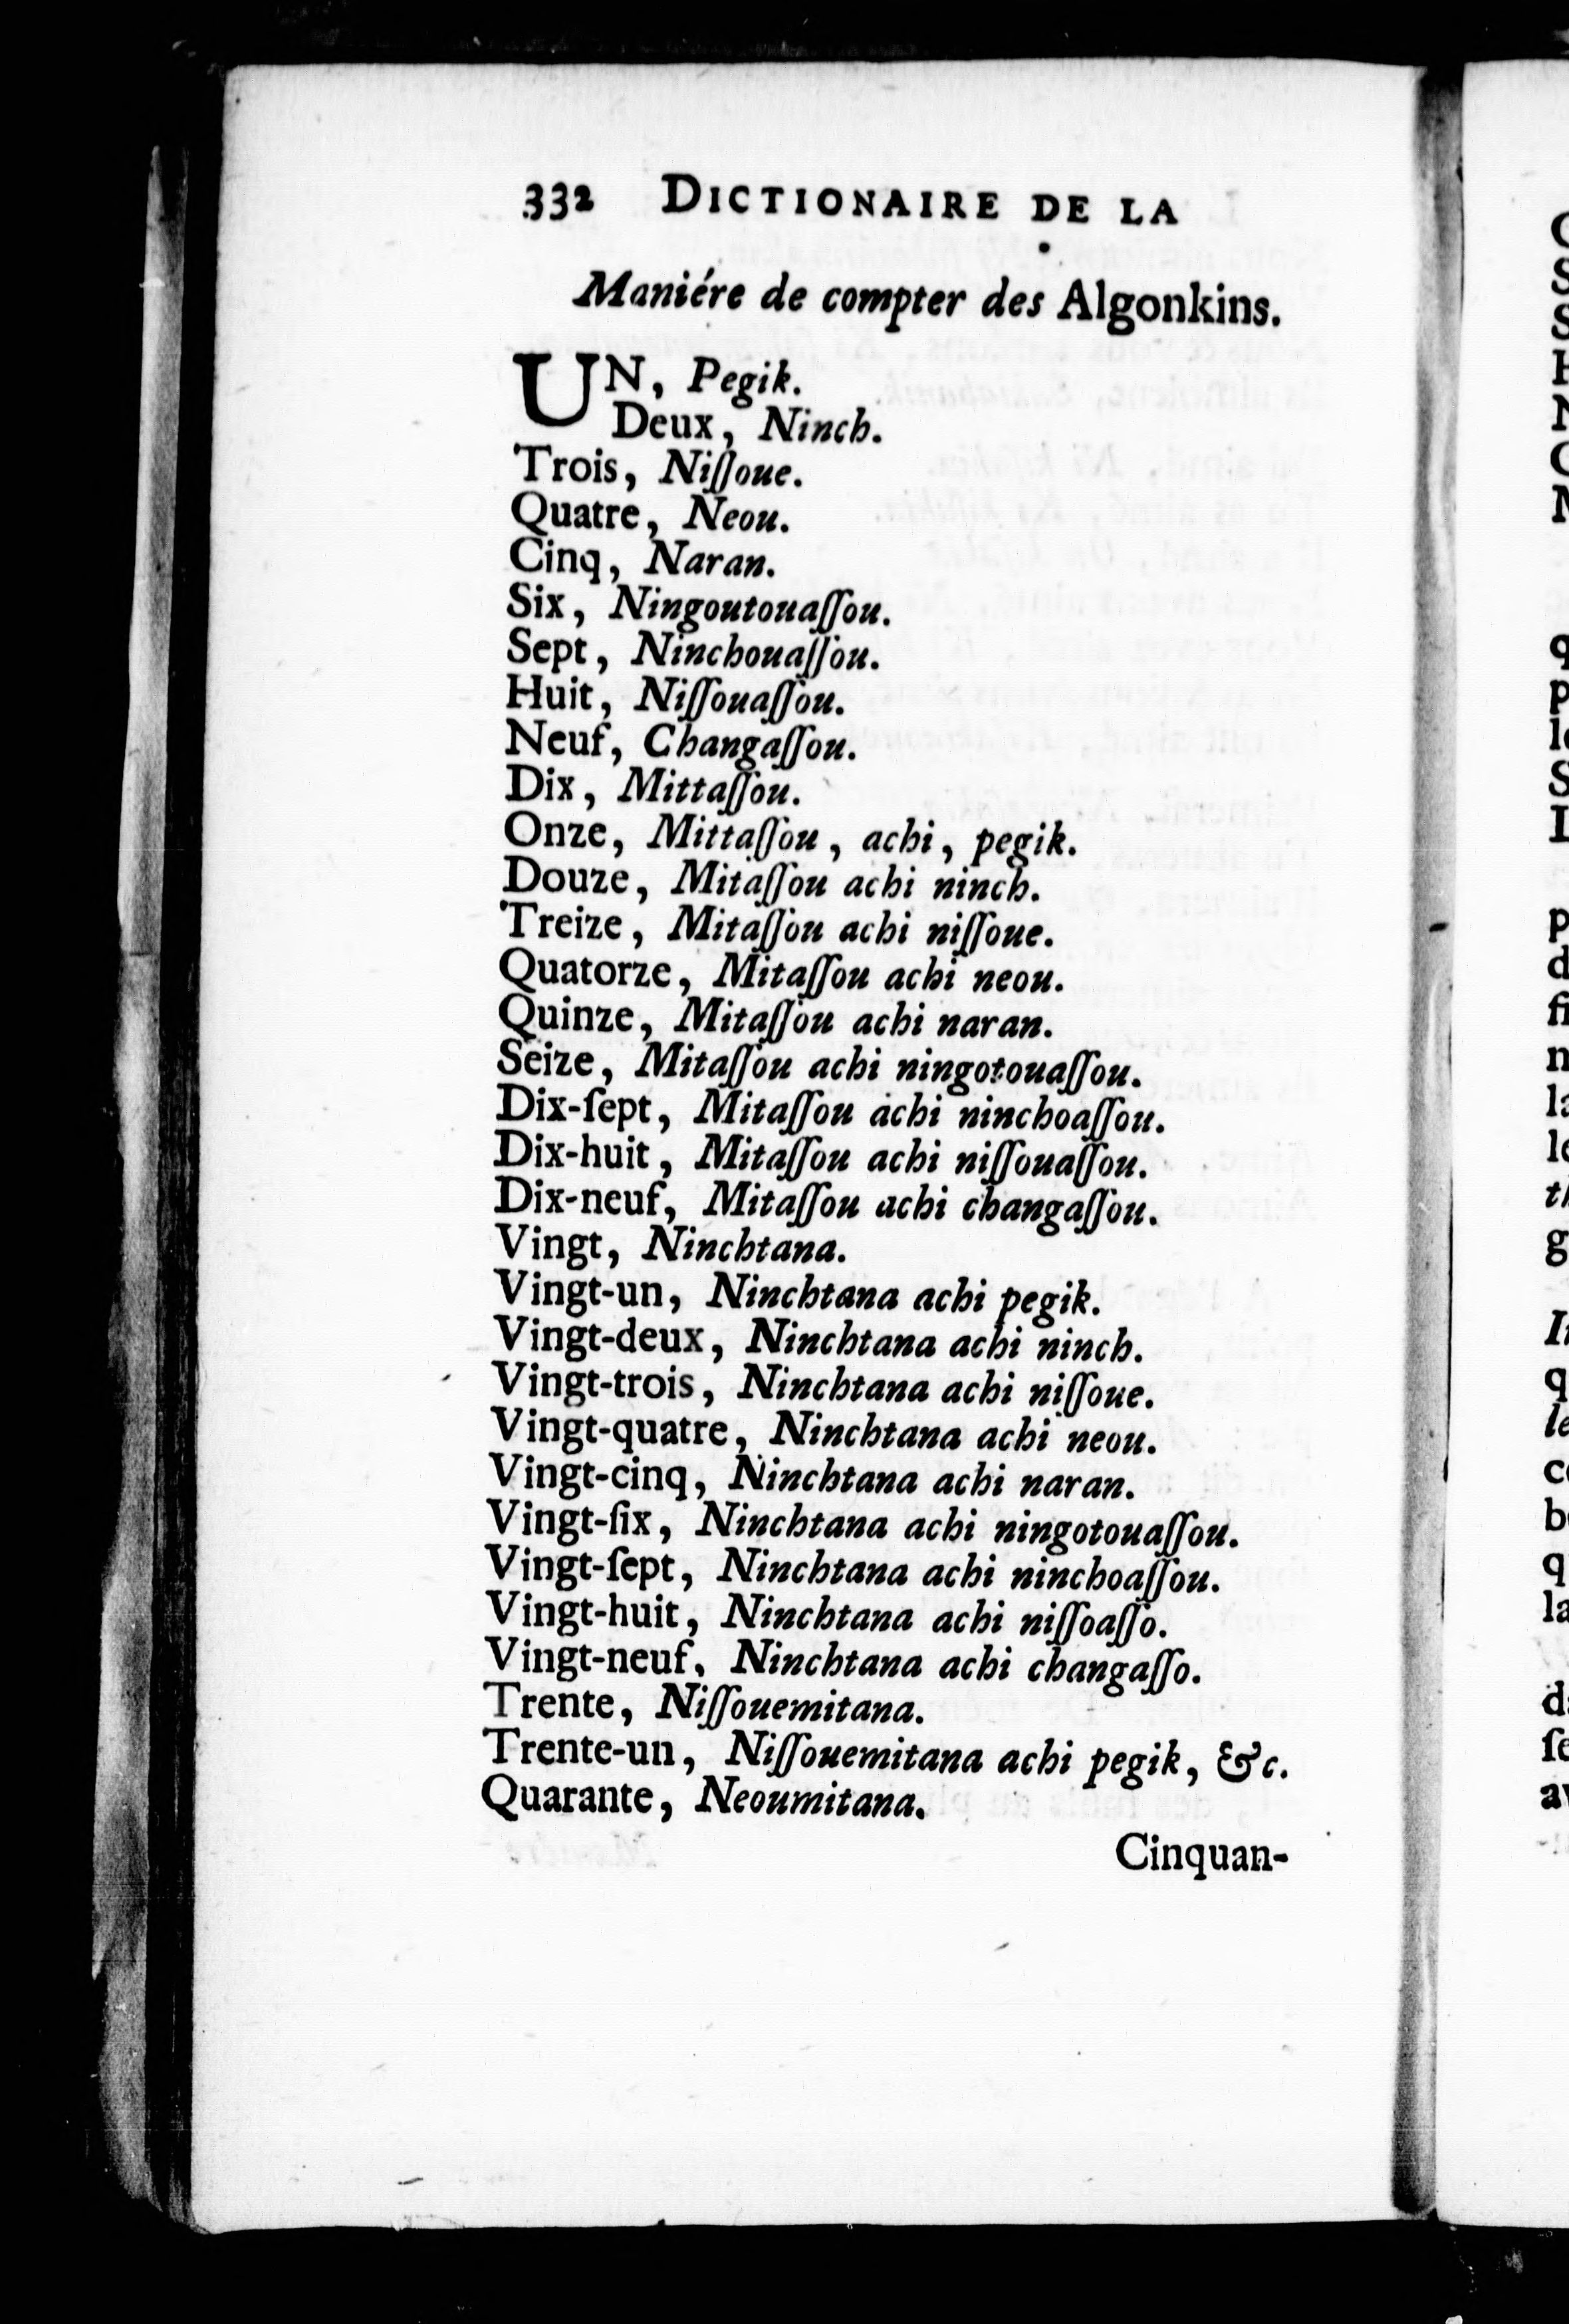 332 DICTIONAIRE DE LA
Maniére de compter des Algonkins.
UN, Pegik.
Deux, Ninch.
Trois, Niſſoue.
Quatre, Neou.
Cinq, Naran.
Six, Ningoutouaſſou.
Sept, Ninchouaſſou.
Huit, Niſſouaſſou.
Neuf, Changaſſou.
Dix, Mittaſſou.
Onze, Mittaſſou, achi, pegik.
Douze, Mitaſſou achi ninch.
Treize, Mitaſſou achi niſſoue.
Quatorze, Mitaſſou achi neou.
Quinze, Mitaſſou achi naran.
Seize, Mitaſſou achi ningotouaſſou.
Dix-ſept, Mitaſſou achi ninchoaſſou.
Dix-huit, Mitaſſou achi niſſouaſſou.
Dix-neuf, Mitaſſou achi changaſſou.
Vingt, Ninchtana.
Vingt-un, Ninchtana achi pegik.
Vingt-deux, Ninchtana achi ninch.
Vingt-trois, Ninchtana achi niſſoue.
Vingt-quatre, Ninchtana achi neou.
Vingt-cinq, Ninchtana achi naran.
Vingt-ſix, Ninchtana achi ningotouaſſou.
Vingt-ſept, Ninchtana achi ninchoaſſou.
Vingt-huit, Ninchtana achi niſſoaſſo.
Vingt-neuf, Ninchtana achi changaſſo.
Trente, Niſſouemitana.
Trente-un, Niſſouemitana achi pegik, &c.
Quarante, Neoumitana.
Cinquan-